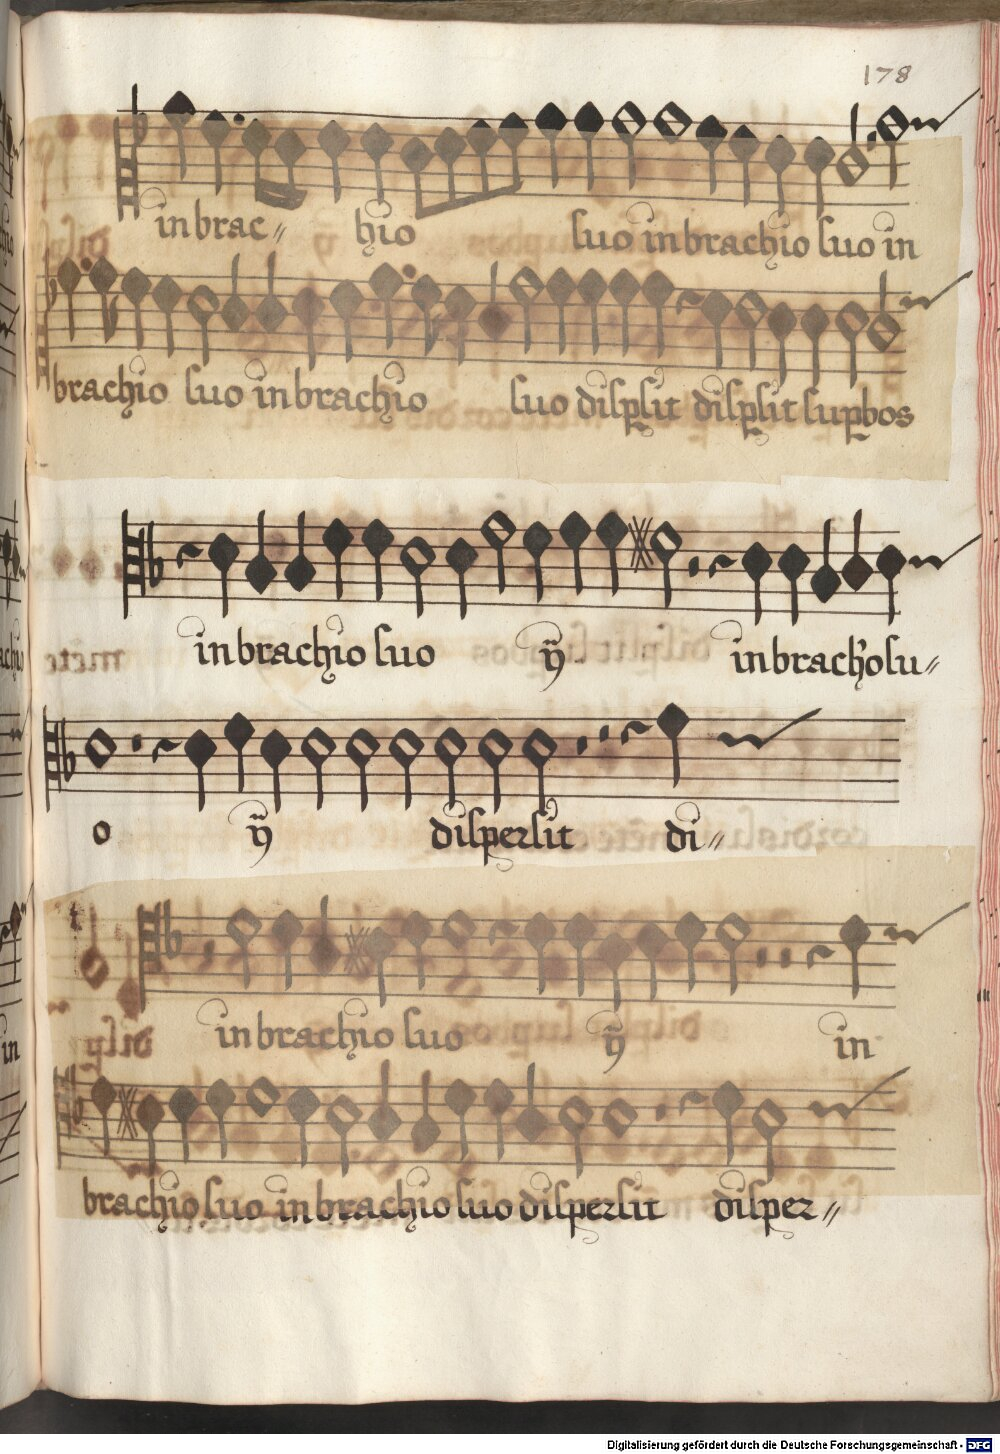 178
in brac- hio suo in brachio suo in
brachio suo in brachio suo dispsit dispsit supbos
in brachio suo ÿ in brachio su-
o ÿ dispersit di-
in brachio suo ÿ in
brachio suo in brachio suo dispersit disper-
Digitalisierung gefördert durch die Deutsche Forschungsgemeinschaft - DFG